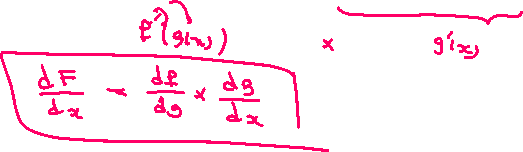 f'(g(x)) × g'(x)
dF/dx = df/dg × dg/dx